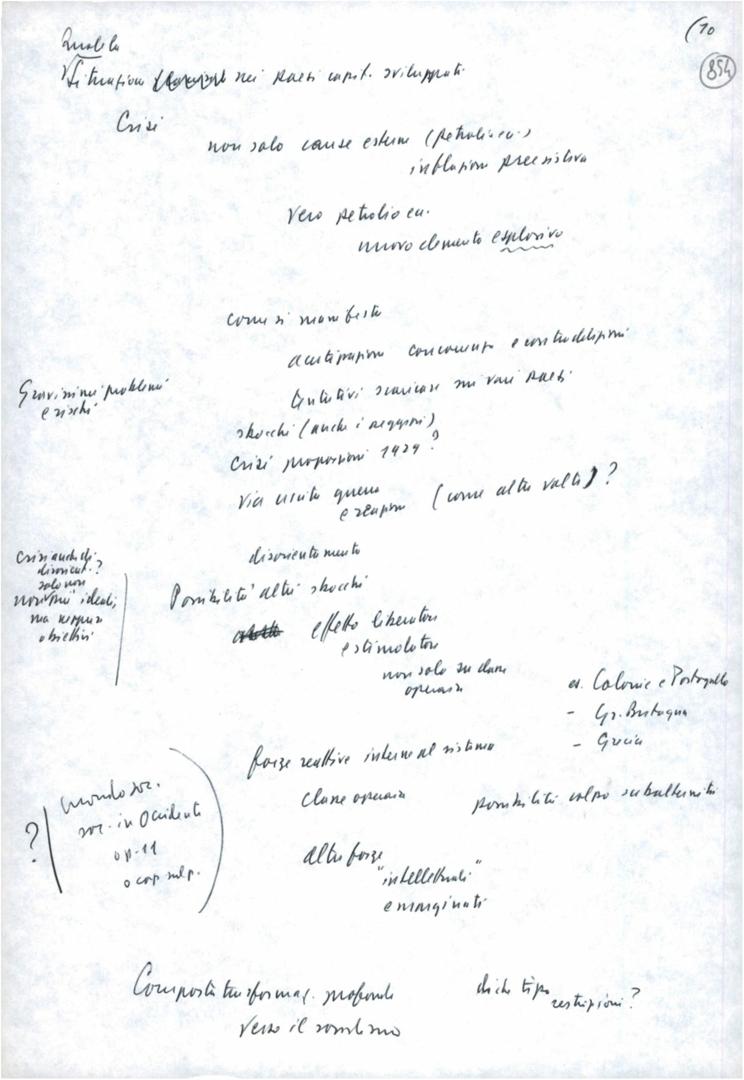 (10
854
Quale la
situazione nei paesi capit. sviluppati
Crisi
non solo cause esterne (petrolio ecc.)
inflazione preesistiva
vero petrolio ecc.
nuovo elemento esplosivo
come si manifesta
acutizzazione concorrenza e contraddizioni
Gravissimi problemi
e rischi
tentativi scaricare sui vari paesi
sbocchi (anche i peggiori)
crisi proporzioni 1929?
via uscita guerra
e reazione (come altre volte)?
disorientamento
Crisi anche di
solo non
ideali,
ma neppure
obiettivi
Possibilità altri sbocchi
effetto liberatore
e stimolatore
non solo su classe
operaia
es. Colonie e Portogallo
- Gr. Bretagna
- Grecia
forze reattive interne al sistema
classe operaia
possibilità subalternità
?
mondo soc.
soc. in Occidente
op. 11
altre forze
"intellettuali"
emarginati
Comporta trasformaz. profonde
verso il socialismo
di che tipo
restrizioni?